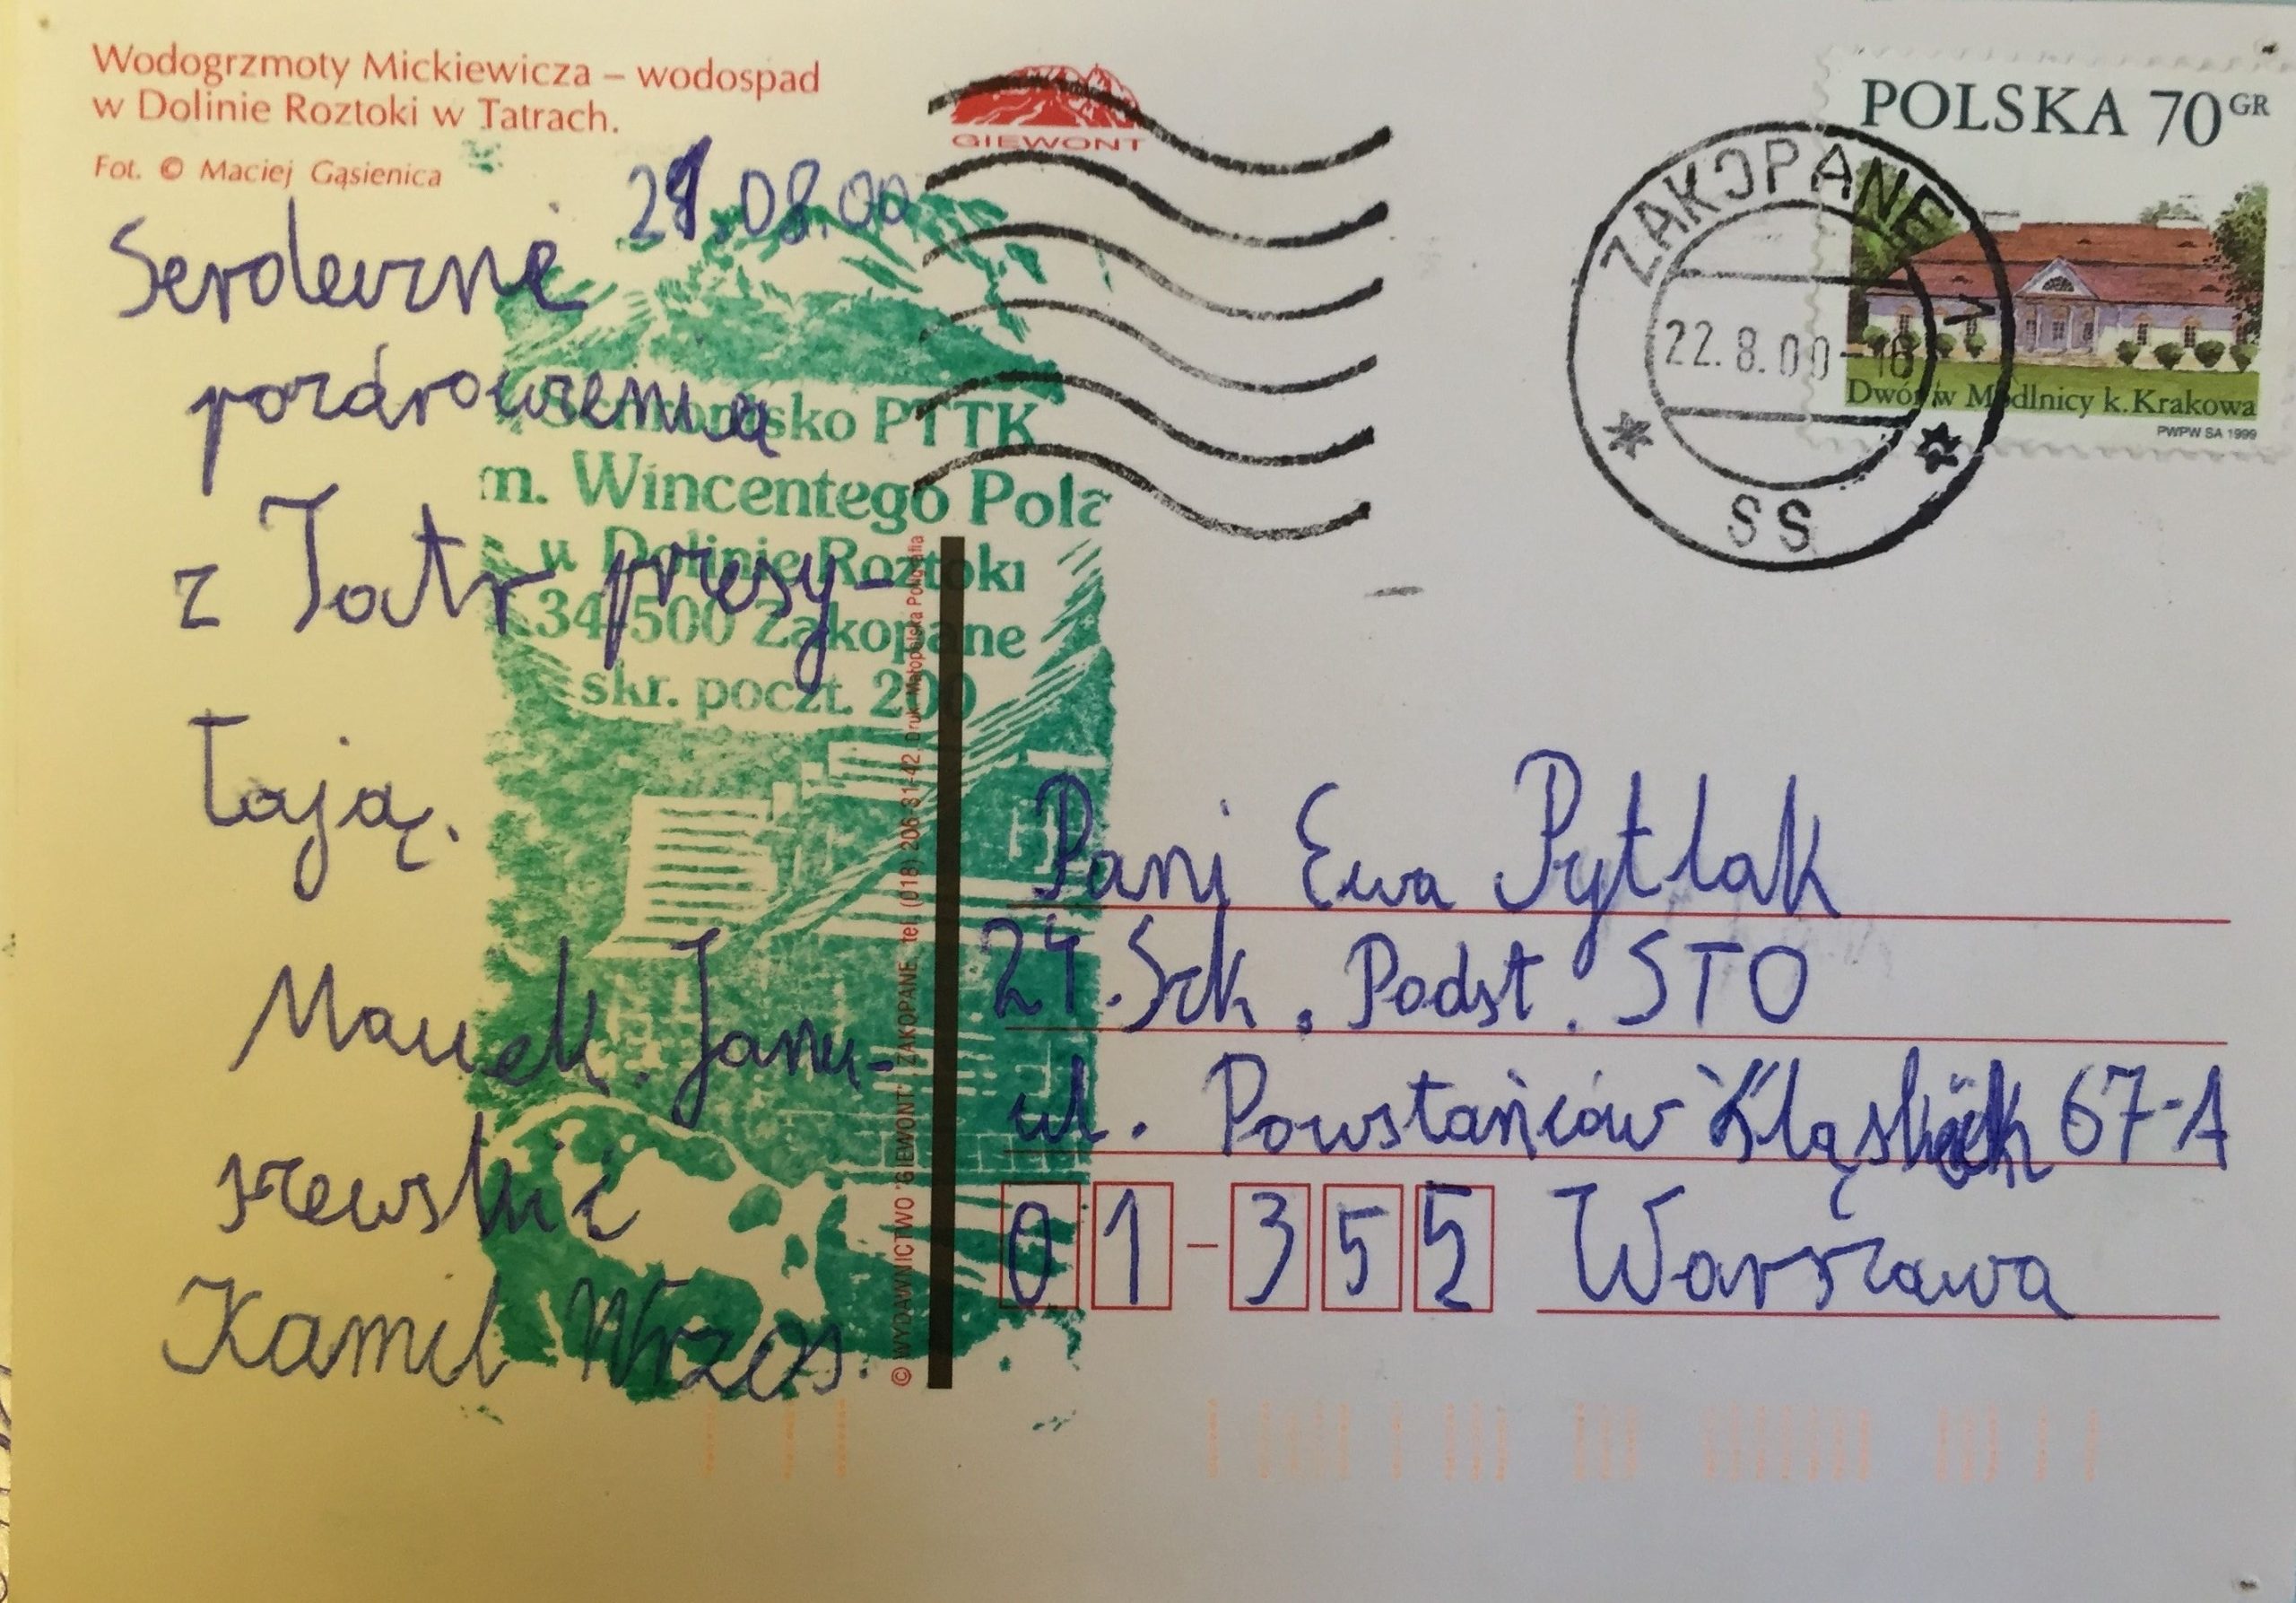 Wodogrzmoty Mickiewicza – wodospad
w Dolinie Roztoki w Tatrach.
Fot. © Maciej Gąsienica
GIEWONT
POLSKA 70 GR
Dwór w Modlnicy k. Krakowa
PWPW SA 1999
ZAKOPANE
22.8.00-16
SS
21.08.00
Serdeczne
pozdrowienia
z Tatr przesy-
łają.
Maciek Janu-
szewski i
Kamil Wrzos.
Schronisko PTTK
m. Wincentego Pola
w Dolinie Roztoki
34-500 Zakopane
skr. poczt. 200
© WYDAWNICTWO "GIEWONT" ZAKOPANE tel. (018) 206-81-42 Druk: Małopolska Poligrafia
Pani Ewa Pytlak
24. Szk. Podst. STO
ul. Powstańców Śląskich 67-A
01-355 Warszawa